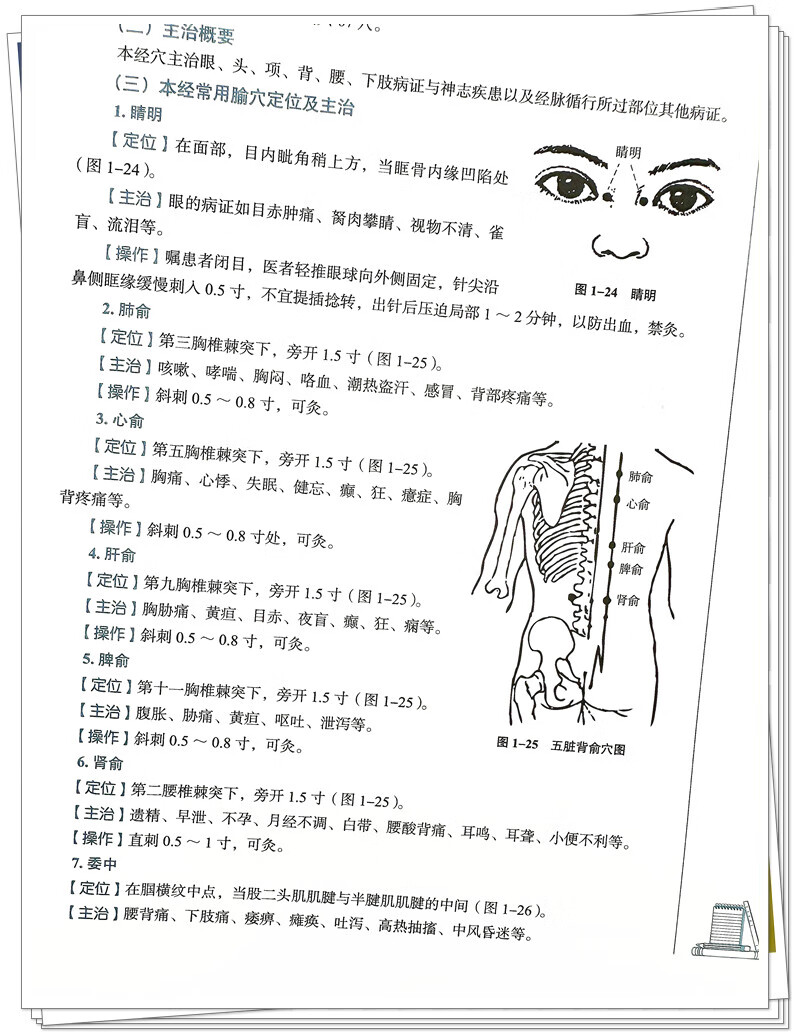 （二）主治概要
本经穴主治眼、头、项、背、腰、下肢病证与神志疾患以及经脉循行所过部位其他病证。
（三）本经常用腧穴定位及主治
1. 睛明
【定位】在面部，目内眦角稍上方，当眶骨内缘凹陷处
（图 1-24）。
【主治】眼的病证如目赤肿痛、胬肉攀睛、视物不清、雀
盲、流泪等。
【操作】嘱患者闭目，医者轻推眼球向外侧固定，针尖沿
鼻侧眶缘缓慢刺入 0.5 寸，不宜提插捻转，出针后压迫局部 1～2 分钟，以防出血，禁灸。
睛明
图 1-24 睛明
2. 肺俞
【定位】第三胸椎棘突下，旁开 1.5 寸（图 1-25）。
【主治】咳嗽、哮喘、胸闷、咯血、潮热盗汗、感冒、背部疼痛等。
【操作】斜刺 0.5～0.8 寸，可灸。
3. 心俞
【定位】第五胸椎棘突下，旁开 1.5 寸（图 1-25）。
【主治】胸痛、心悸、失眠、健忘、癫、狂、癔症、胸
背疼痛等。
【操作】斜刺 0.5～0.8 寸处，可灸。
4. 肝俞
【定位】第九胸椎棘突下，旁开 1.5 寸（图 1-25）。
【主治】胸胁痛、黄疸、目赤、夜盲、癫、狂、痫等。
【操作】斜刺 0.5～0.8 寸，可灸。
5. 脾俞
【定位】第十一胸椎棘突下，旁开 1.5 寸（图 1-25）。
【主治】腹胀、胁痛、黄疸、呕吐、泄泻等。
【操作】斜刺 0.5～0.8 寸，可灸。
肺俞
心俞
肝俞
脾俞
肾俞
图 1-25 五脏背俞穴图
6. 肾俞
【定位】第二腰椎棘突下，旁开 1.5 寸（图 1-25）。
【主治】遗精、早泄、不孕、月经不调、白带、腰酸背痛、耳鸣、耳聋、小便不利等。
【操作】直刺 0.5～1 寸，可灸。
7. 委中
【定位】在腘横纹中点，当股二头肌肌腱与半腱肌肌腱的中间（图 1-26）。
【主治】腰背痛、下肢痛、痿痹、瘫痪、吐泻、高热抽搐、中风昏迷等。